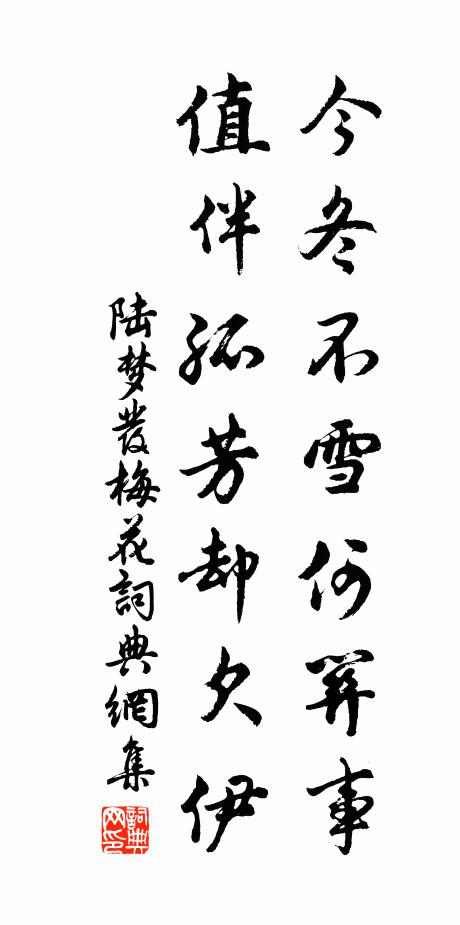 今冬不雪何關事
值伴孤芳却欠伊
陆梦發梅花詞典網集
詞典网印